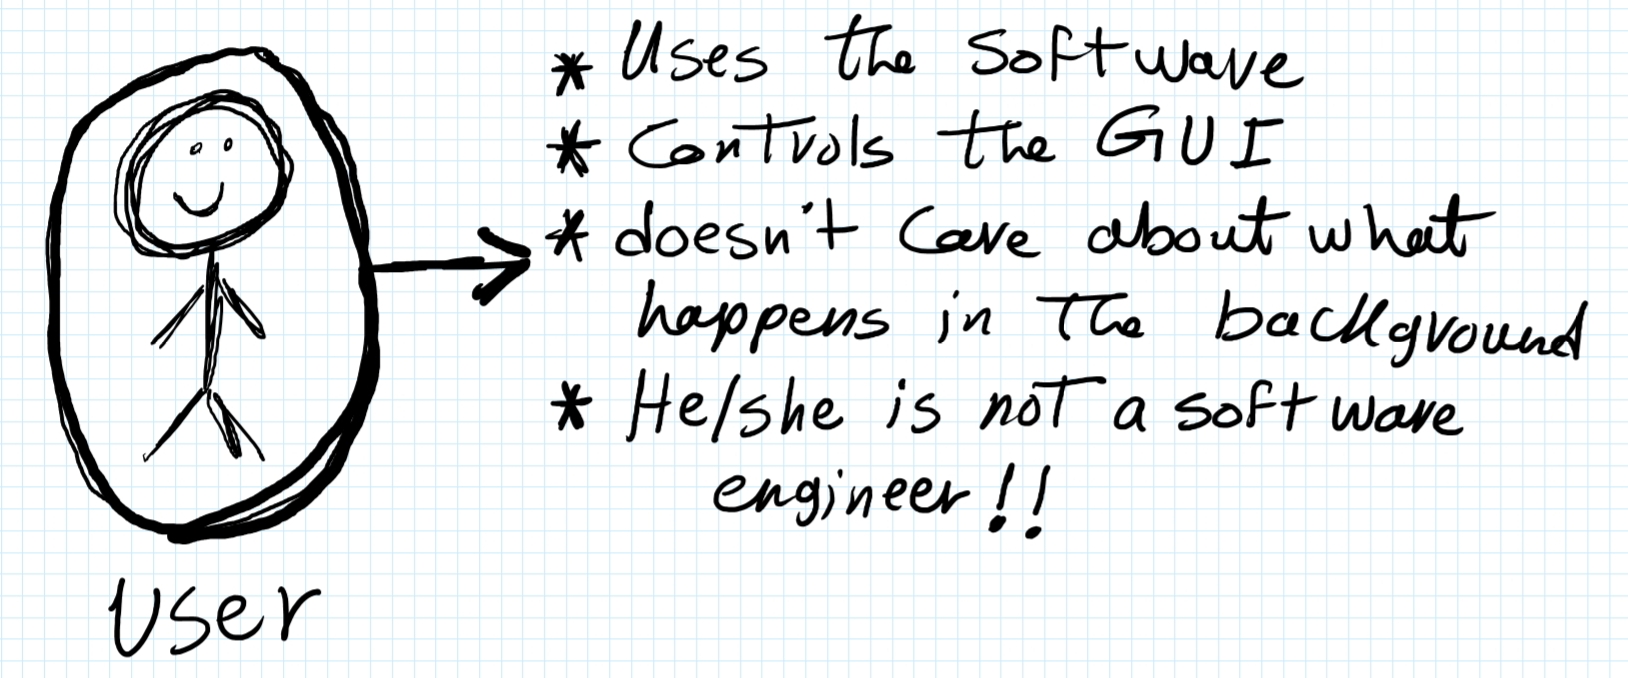 * Uses the software
* Controls the GUI
* doesn't care about what
happens in The background
* He/she is not a software
engineer!!
User